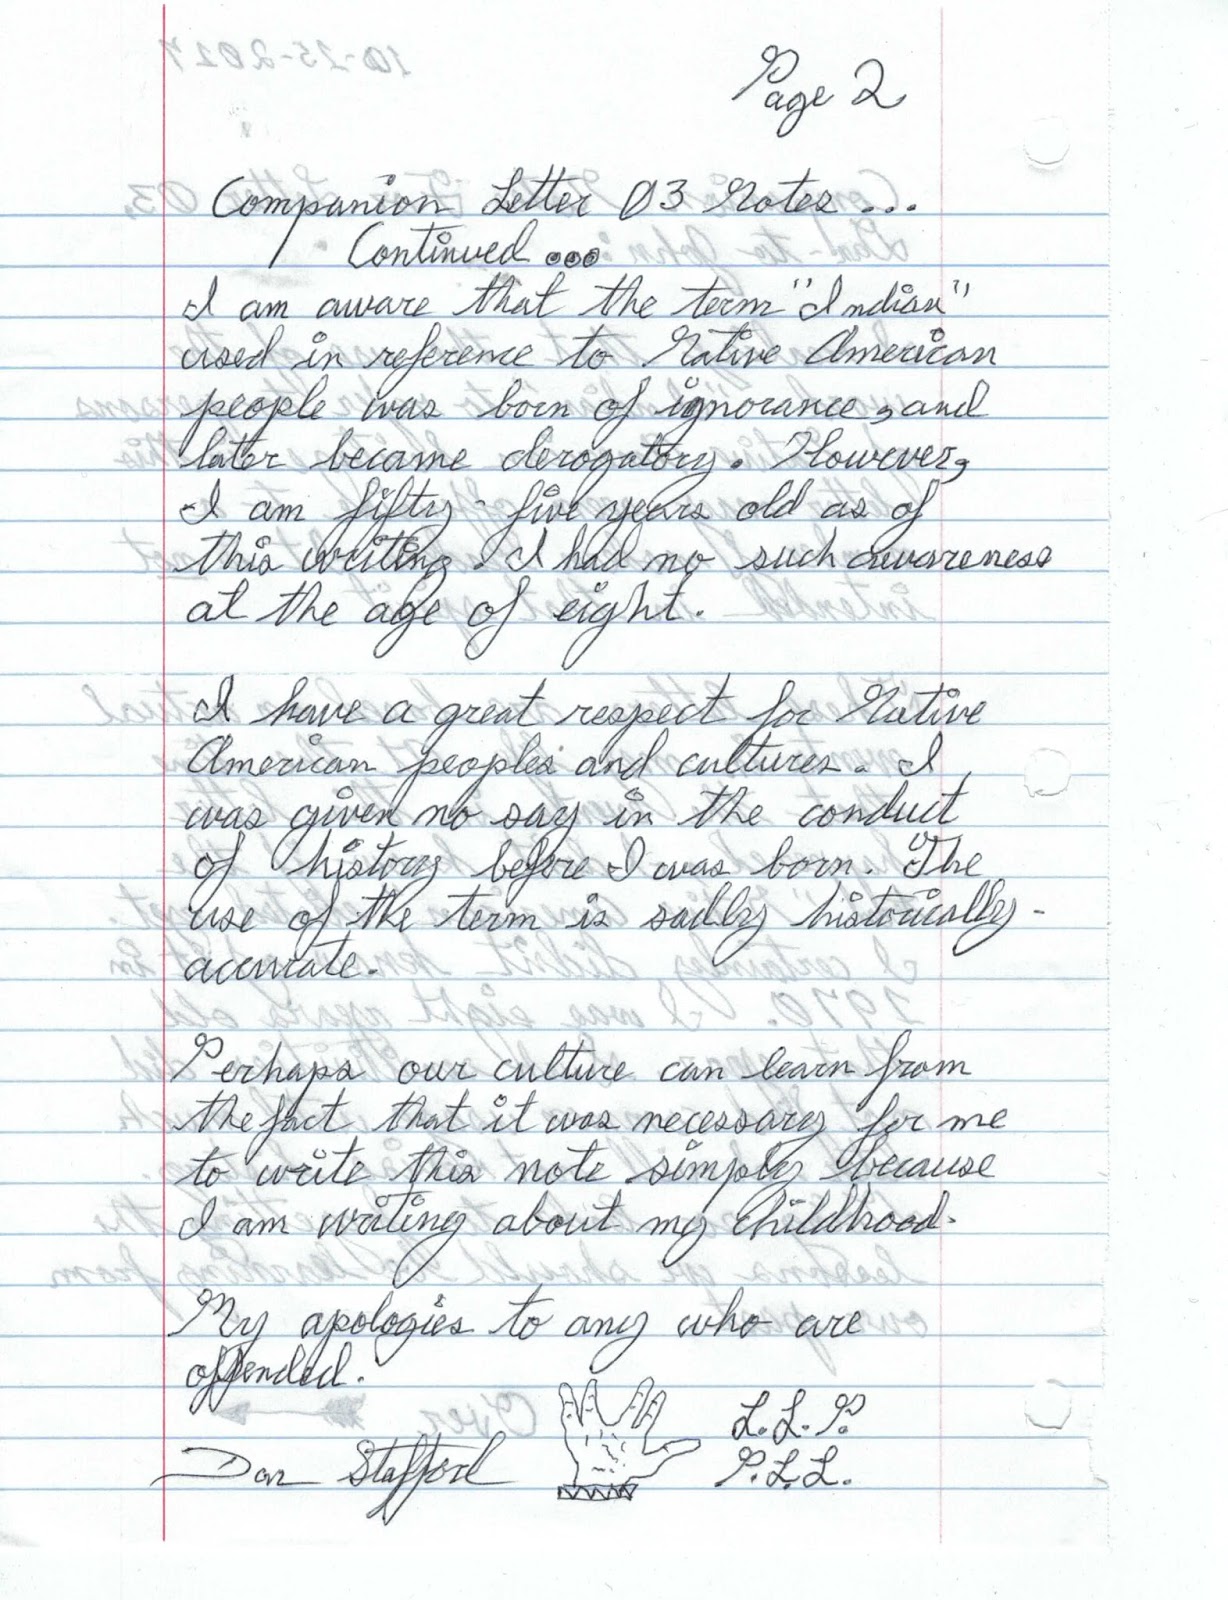 Page 2
Companion Letter 03 Notes ...
Continued ...
I am aware that the term "Indian"
used in reference to Native American
people was born of ignorance, and
later became derogatory. However,
I am fifty-five years old as of
this writing. I had no such awareness
at the age of eight.
I have a great respect for Native
American peoples and cultures. I
was given no say in the conduct
of history before I was born. The
use of the term is sadly historically-
accurate.
Perhaps our culture can learn from
the fact that it was necessary for me
to write this note simply because
I am writing about my childhood.
My apologies to any who are
offended.
Dan Stafford
L.L.P.
P.L.L.